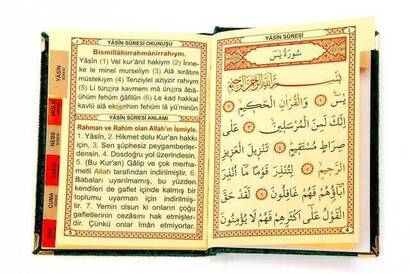 YÂSÎN SÛRESİ OKUNUŞU
Bismillâhirrahmânirrahıym.
Yâsîn (1) Vel kur'ânil hakiym (2) İnne-
ke le minel murseliyn (3) Alâ sırâtım
müstekıym (4) Tenziylel aziyzir rahıym
(5) Li tünzira kavmem mâ ünzira âbâ-
ühüm fehüm ğâfilûn (6) Le kad hakkal
YÂSÎN SÛRESİ ANLAMI
Rahman ve Rahim olan Allah'ın İsmiyle.
1. Yâsîn, 2. Hikmet dolu Kur'an hakkı
için, 3. Sen şüphesiz peygamberler-
densin. 4. Dosdoğru yol üzerindesin.
5. (Bu Kur'an) Gâlip ve çok merha-
metli Allah tarafından indirilmiştir. 6.
Babaları uyarılmamış, bu yüzden
kendileri de gaflet içinde kalmış bir
toplumu uyarman için indirilmiş-
tir. 7. Yemin olsun ki onların çoğu
gafletlerinin cezasını hak etmişler-
dir. Çünkü onlar îman etmiyorlar.
YÂSÎN
NEBE
CUMA
YÂSÎN SÛRESİ
سُورَةُ يٰسٓ
بِسْمِ اللّٰهِ الرَّحْمٰنِ الرَّحِيمِ
يٰسٓ ﴿١﴾ وَالْقُرْاٰنِ الْحَكِيمِ ﴿٢﴾
اِنَّكَ لَمِنَ الْمُرْسَلِينَ ﴿٣﴾ عَلٰى
صِرَاطٍ مُسْتَقِيمٍ ﴿٤﴾ تَنْزِيلَ الْعَزِيزِ
الرَّحِيمِ ﴿٥﴾ لِتُنْذِرَ قَوْمًا مَٓا اُنْذِرَ
اٰبَٓاؤُ۬هُمْ فَهُمْ غَافِلُونَ ﴿٦﴾ لَقَدْ حَقَّ
الْقَوْلُ عَلٰٓى اَكْثَرِهِمْ فَهُمْ لَا يُؤْمِنُونَ
4